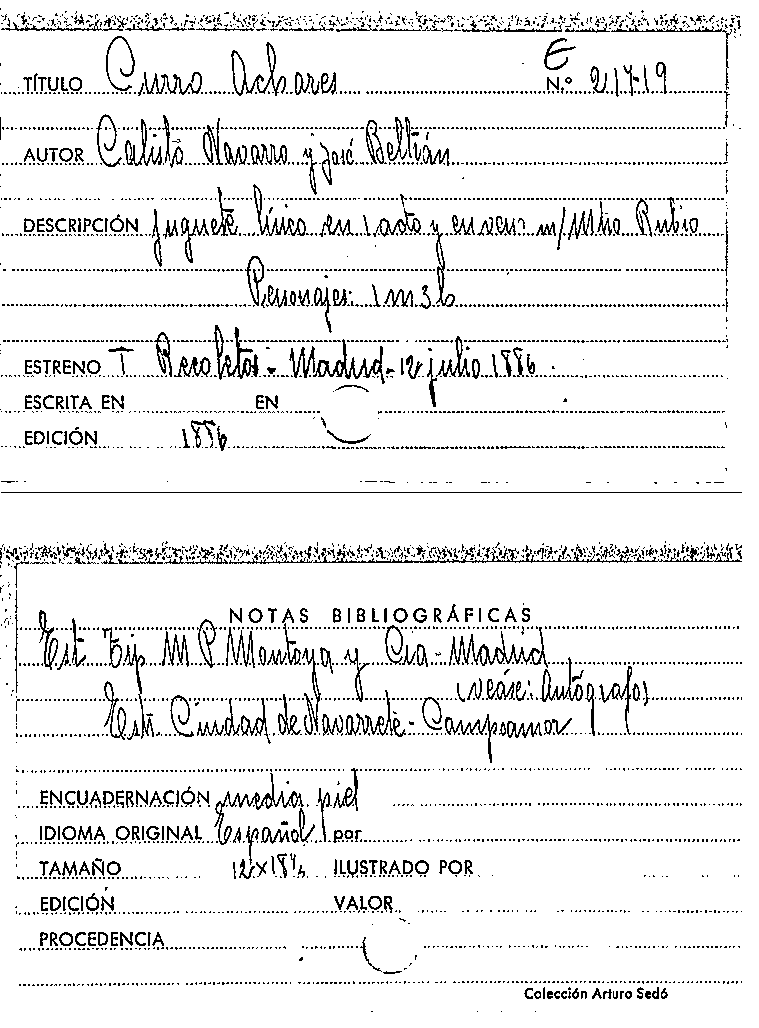 E
TÍTULO Curro Achares N.º 217-19
AUTOR Calisto Navarro y José Beltrán
DESCRIPCIÓN juguete lírico en 1 acto y en verso m/ Mtro Rubio
Personajes: 1 m 3 h
ESTRENO T Recoletos - Madrid - 12 julio 1886.
ESCRITA EN EN
EDICIÓN 1886
NOTAS BIBLIOGRÁFICAS
Est. Tip M P Montoya y Cia - Madrid
(veáse: Autógrafos
Est. Ciudad de Navarrete - Campoamor
ENCUADERNACIÓN media piel
IDIOMA ORIGINAL Español por
TAMAÑO ILUSTRADO POR
EDICIÓN VALOR
PROCEDENCIA
Colección Arturo Sedó